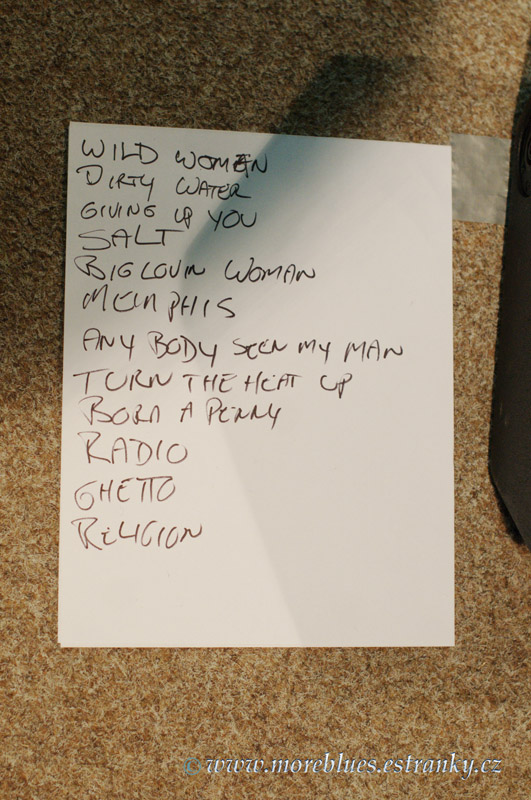 WILD WOMEN
DIRTY WATER
GIVING UP YOU
SALT
BIG LOVIN WOMAN
MEMPHIS
ANY BODY SEEN MY MAN
TURN THE HEAT UP
BORN A PENNY
RADIO
GHETTO
RELIGION
© www.moreblues.estranky.cz